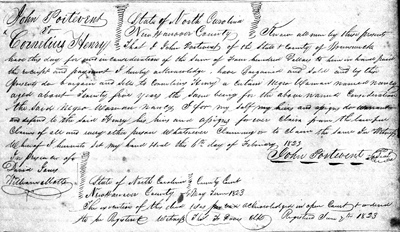 John Poitivent
to
Cornelius Henry
State of North Carolina
New Hanover County
Know all men by these presents
That I John Poitivent of the State & County of Brunswick
have this day for and in consideration of the sum of Four hundred Dollars to him in hand paid
the receipt and payment I hereby acknowledge, have Bargained and Sold and by this
presents do bargain and sell to Cornelius Henry a certain Negro Woman named Nancy
aged about Twenty five years the same being for the above named Consideration
the said Negro Woman Nancy, I for myself my heirs and assigns do warrant
and defend to the said Henry his heirs and assigns for ever Claim from the lawful
Claims of all and every other person Whatsoever Claiming or to Claim the same In Witness
Whereof I hereunto set my hand this the 6th day of February 1823
In presence of
John Poitivent
David Jones
William
State of North Carolina
New Hanover County
County Court
May Term 1823
The execution of the above was Acknowledged in open Court & ordered
to be Registered Witness Tho. F. Davis Clk
Registered June 7th 1823